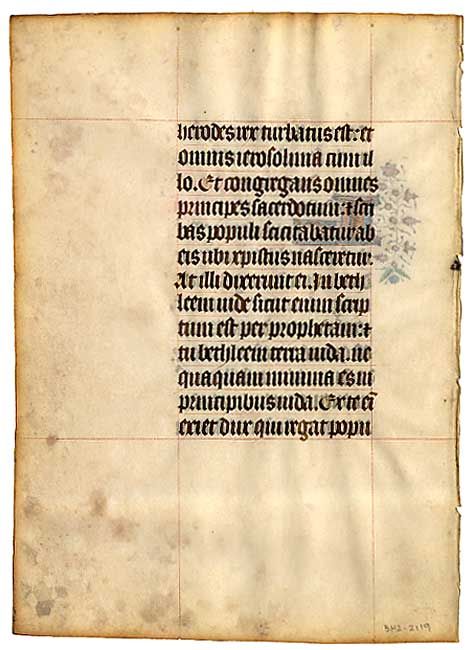 herodes rex turbatus est: et
omnis ierosolima cum il
lo. Et congregans omnes
principes sacerdotum: ⁊ scri
bas populi scicitabatur ab
eis ubi xpistus nasceretur.
At illi dixerunt ei. In beth
leem iude sicut enim scrip
tum est per prophetam: ⁊
tu bethleem terra iuda. ne
quaquam minima es in
principibus iuda. Ex te eī
exiet dux qui regat popu
BH2-2119